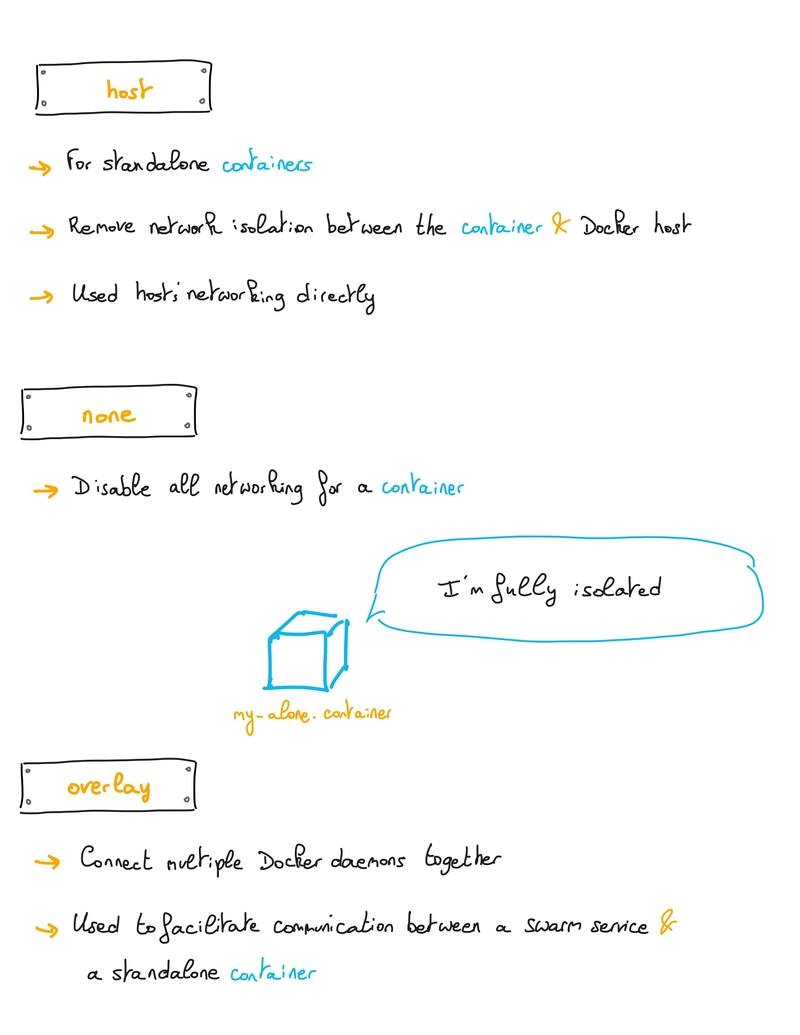 host
→ For standalone containers
→ Remove network isolation between the container & Docker host
→ Used host's networking directly
none
→ Disable all networking for a container
I'm fully isolated
my-alone-container
overlay
→ Connect multiple Docker daemons together
→ Used to facilitate communication between a swarm service &
a standalone container